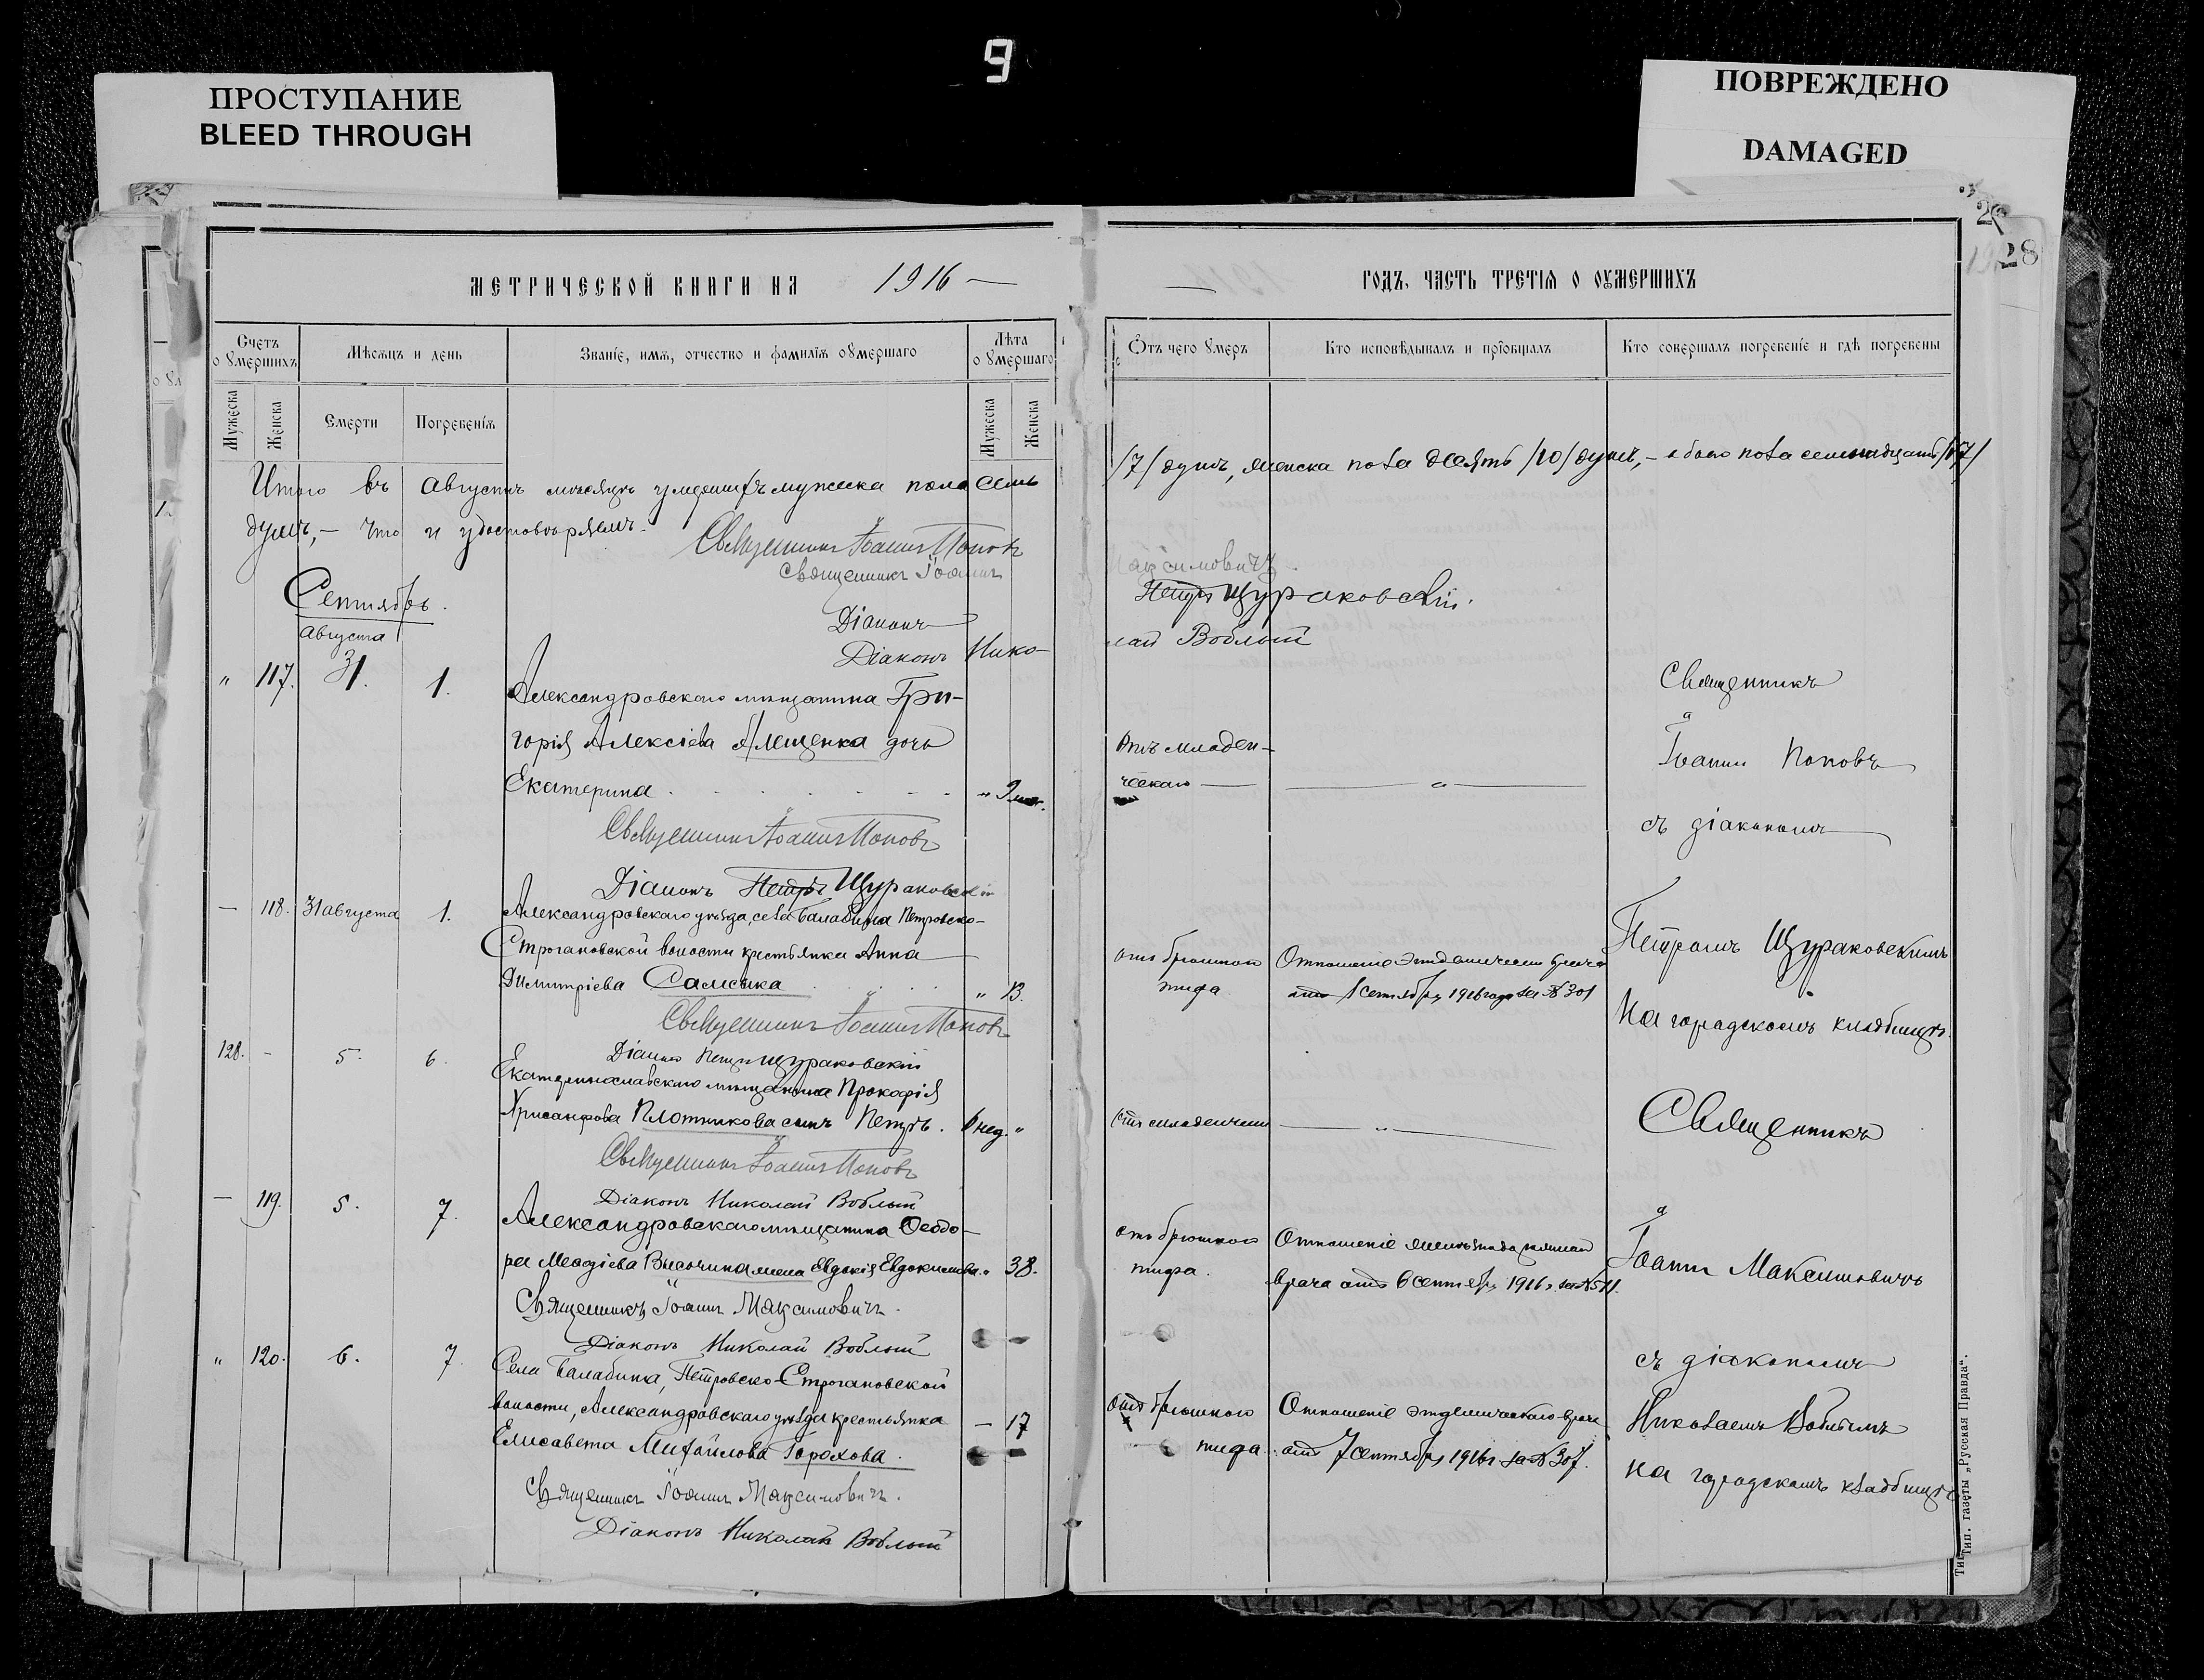 9
ПРОСТУПАНИЕ
BLEED THROUGH
ПОВРЕЖДЕНО
DAMAGED
28
МЕТРИЧЕСКОЙ КНИГИ НА 1916
ГОДЪ, ЧАСТЬ ТРЕТІЯ О ОУМЕРШИХЪ
Счетъ о умершихъ
Мѣсяцъ и день
Званіе, имя, отчество и фамилія оумершаго
Лѣта оумершаго
Отъ чего умеръ
Кто исповѣдывалъ и пріобщалъ
Кто совершалъ погребеніе и гдѣ погребены
Мужеска
Женска
Смерти
Погребенія
Мужеска
Женска
Итого въ августѣ мѣсяцѣ умершихъ мужеска пола семь /7/ душъ, женска пола десять /10/ душъ, – обоего пола семнадцать /17/
душъ, – что и удостовѣряемъ.
Священникъ Іоаннъ Поповъ
Священникъ Іоаннъ Максимовичъ.
Діаконъ Петръ Щураковскій.
Діаконъ Николай Воблый
Сентябрь.
августа
" 117. 31. 1. Александровскаго мѣщанина Гри-
горія Алексіева Алещенка дочь
Екатерина " 9 мѣс.
Отъ младен-
ческаго
Священникъ Іоаннъ Поповъ
Діаконъ Петръ Щураковскій
Священникъ
Іоаннъ Поповъ
съ діакономъ
Петромъ Щураковскимъ
На городскомъ кладбищѣ.
— 118. 31 августа 1. Александровскаго уѣзда, села Балабина Петровско-
Строгановской волости крестьянка Анна
Димитріева Самсика " 13.
отъ брюшного
тифа
Отношеніе эпидемическаго врача
отъ 1 сентября 1916 года за № 301
Священникъ Іоаннъ Поповъ
Діаконъ Петръ Щураковскій
128. - 5. 6. Екатеринославскаго мѣщанина Прокофія
Хрисанфова Плотникова сынъ Петръ. 6 нед. "
Отъ младенческ
Священникъ Іоаннъ Поповъ
Діаконъ Николай Воблый
— 119. 5. 7. Александровскаго мѣщанина Ѳеодо-
ра Меѳодіева Высочина жена Евдокія Евдокимова " 38.
отъ брюшного
тифа.
Отношеніе
врача отъ 6 сентября 1916 г. за № 511.
Священникъ Іоаннъ Максимовичъ.
Діаконъ Николай Воблый
Священникъ
Іоаннъ Максимовичъ
съ діакономъ
Николаемъ Воблымъ
на городскомъ кладбищѣ
" 120. 6. 7. Села Балабина, Петровско-Строгановской
волости, Александровскаго уѣзда крестьянка
Елисавета Михайлова Горохова. — 17
отъ брюшного
тифа
Отношеніе эпидемическаго врача
отъ 7 сентября 1916 г за № 307.
Священникъ Іоаннъ Максимовичъ.
Діаконъ Николай Воблый
Тип. газеты „Русская Правда".